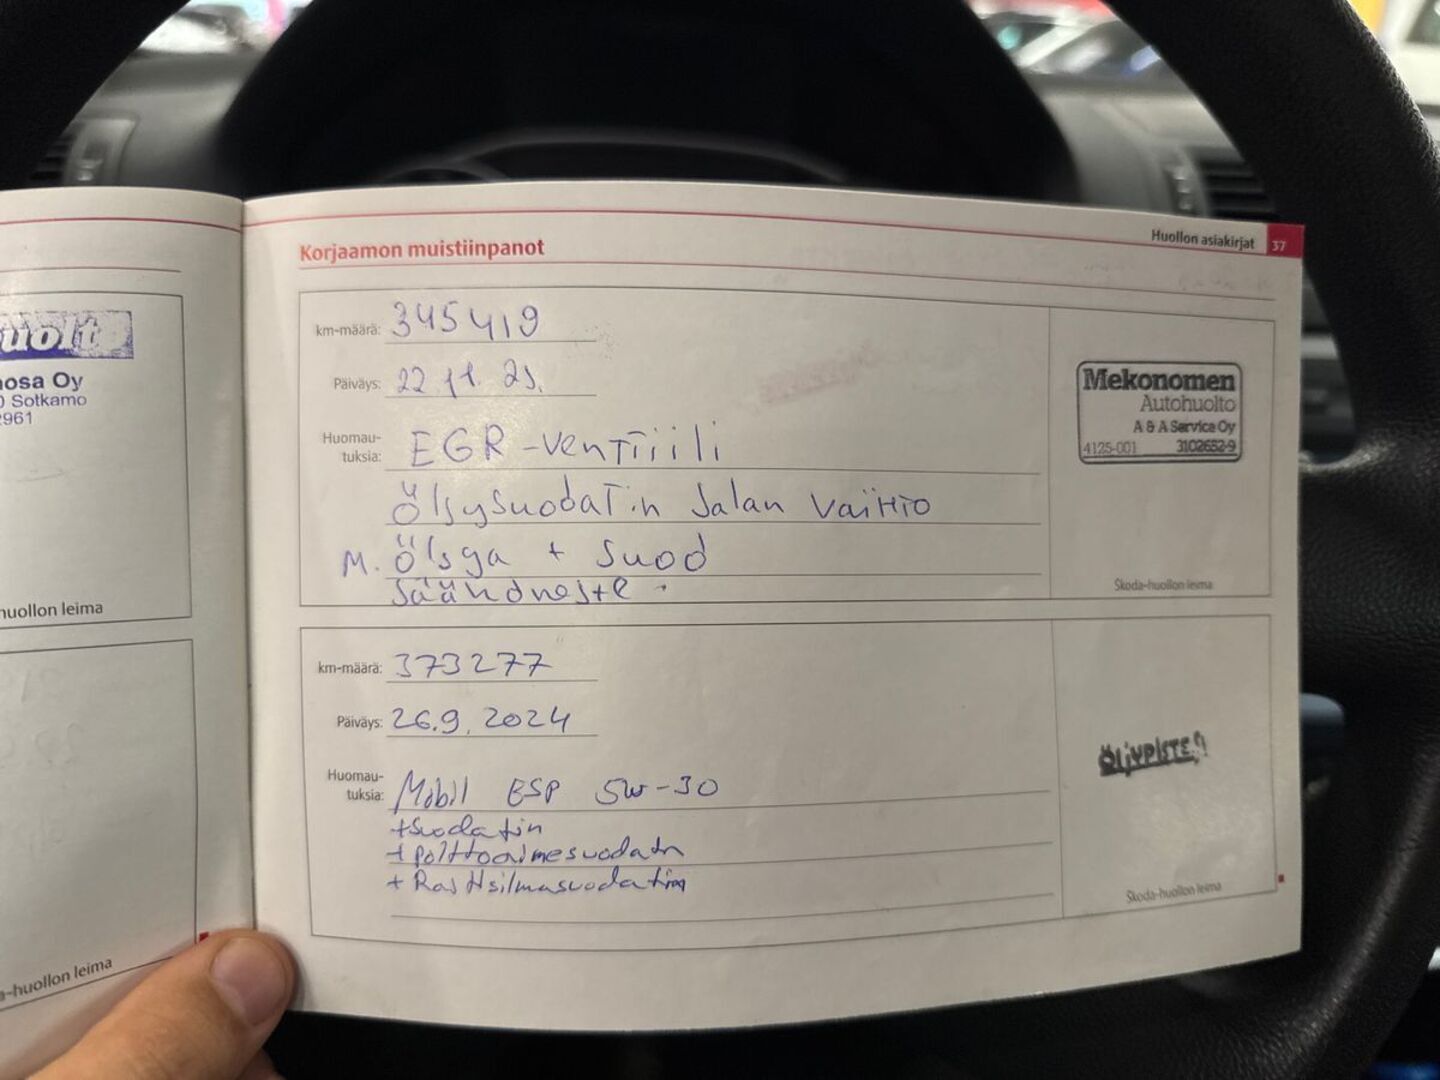 uolto
osa Oy
0 Sotkamo
2961
huollon leima
a-huollon leima
Huollon asiakirjat 37
Korjaamon muistiinpanot
km-määrä: 345419
Päiväys: 22 11. 23.
Huomau-
tuksia: EGR-venTTiili
Ölsysuodatin Jalan vaihto
M. Ölsya + Suod
Säähdneste
Mekonomen
Autohuolto
A & A Service Oy
4125-001 3102652-9
Škoda-huollon leima
km-määrä: 373277
Päiväys: 26.9.2024
Huomau-
tuksia: Mobil ESP 5w-30
+suodatin
+polttoaimesuodatn
+Raittsilmasuodatin
ÖLJYPISTE
Škoda-huollon leima